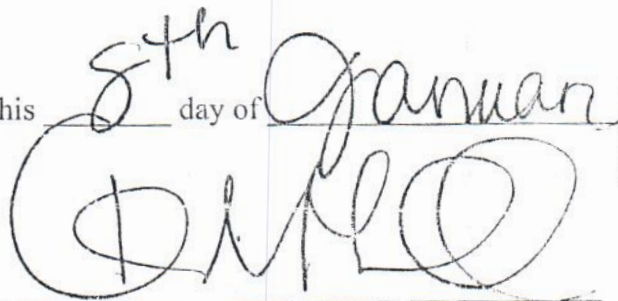 his 8th day of Januar